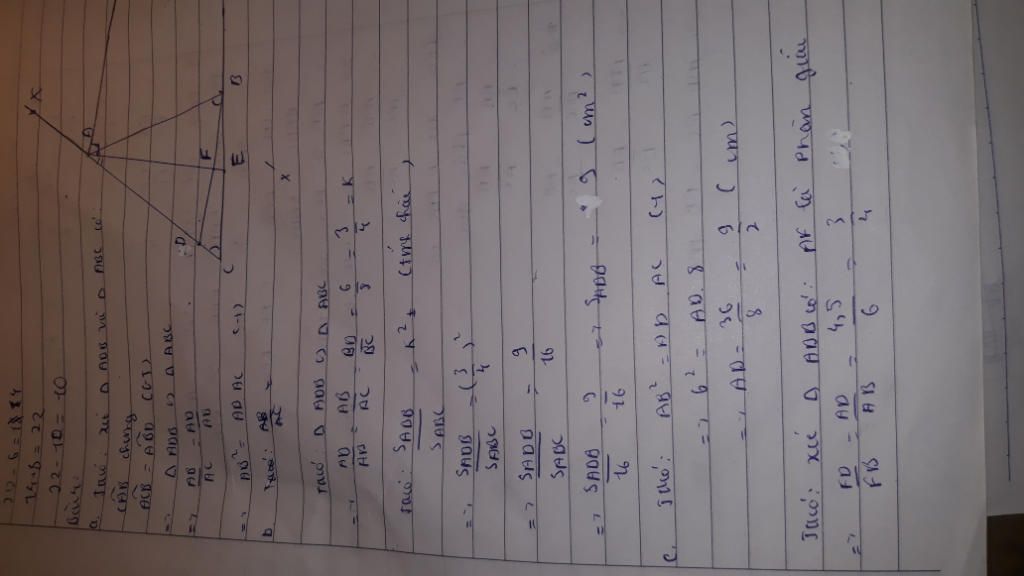 22 - 10 = 10
Giải:
a. Ta có: xét Δ ADB và Δ ABC có:
CÂB chung
AĈB = AB̂D (GT)
=> Δ ADB ∽ Δ ABC
=> AB/AC = AD/AB
=> AB² = AD AC (1)
b Ta có: AB/AC =
Ta có: Δ ADB ∽ Δ ABC
=> AD/AB = AB/AC = BD/BC = 6/8 = 3/4 = K
Ta có: SADB/SABC = K² (tính chất)
=> SADB/SABC = (3/4)²
=> SADB/SABC = 9/16
=> SADB/16 = 9/16 => SADB = 9 (cm²)
c. Ta có: AB² = AD AC (1)
=> 6² = AD. 8
=> AD = 36/8 = 9/2 (cm)
Ta có: xét Δ ADB có: AF là phân giác
=> FD/FB = AD/AB = 4,5/6 = 3/4
x
B
F
E
D
C